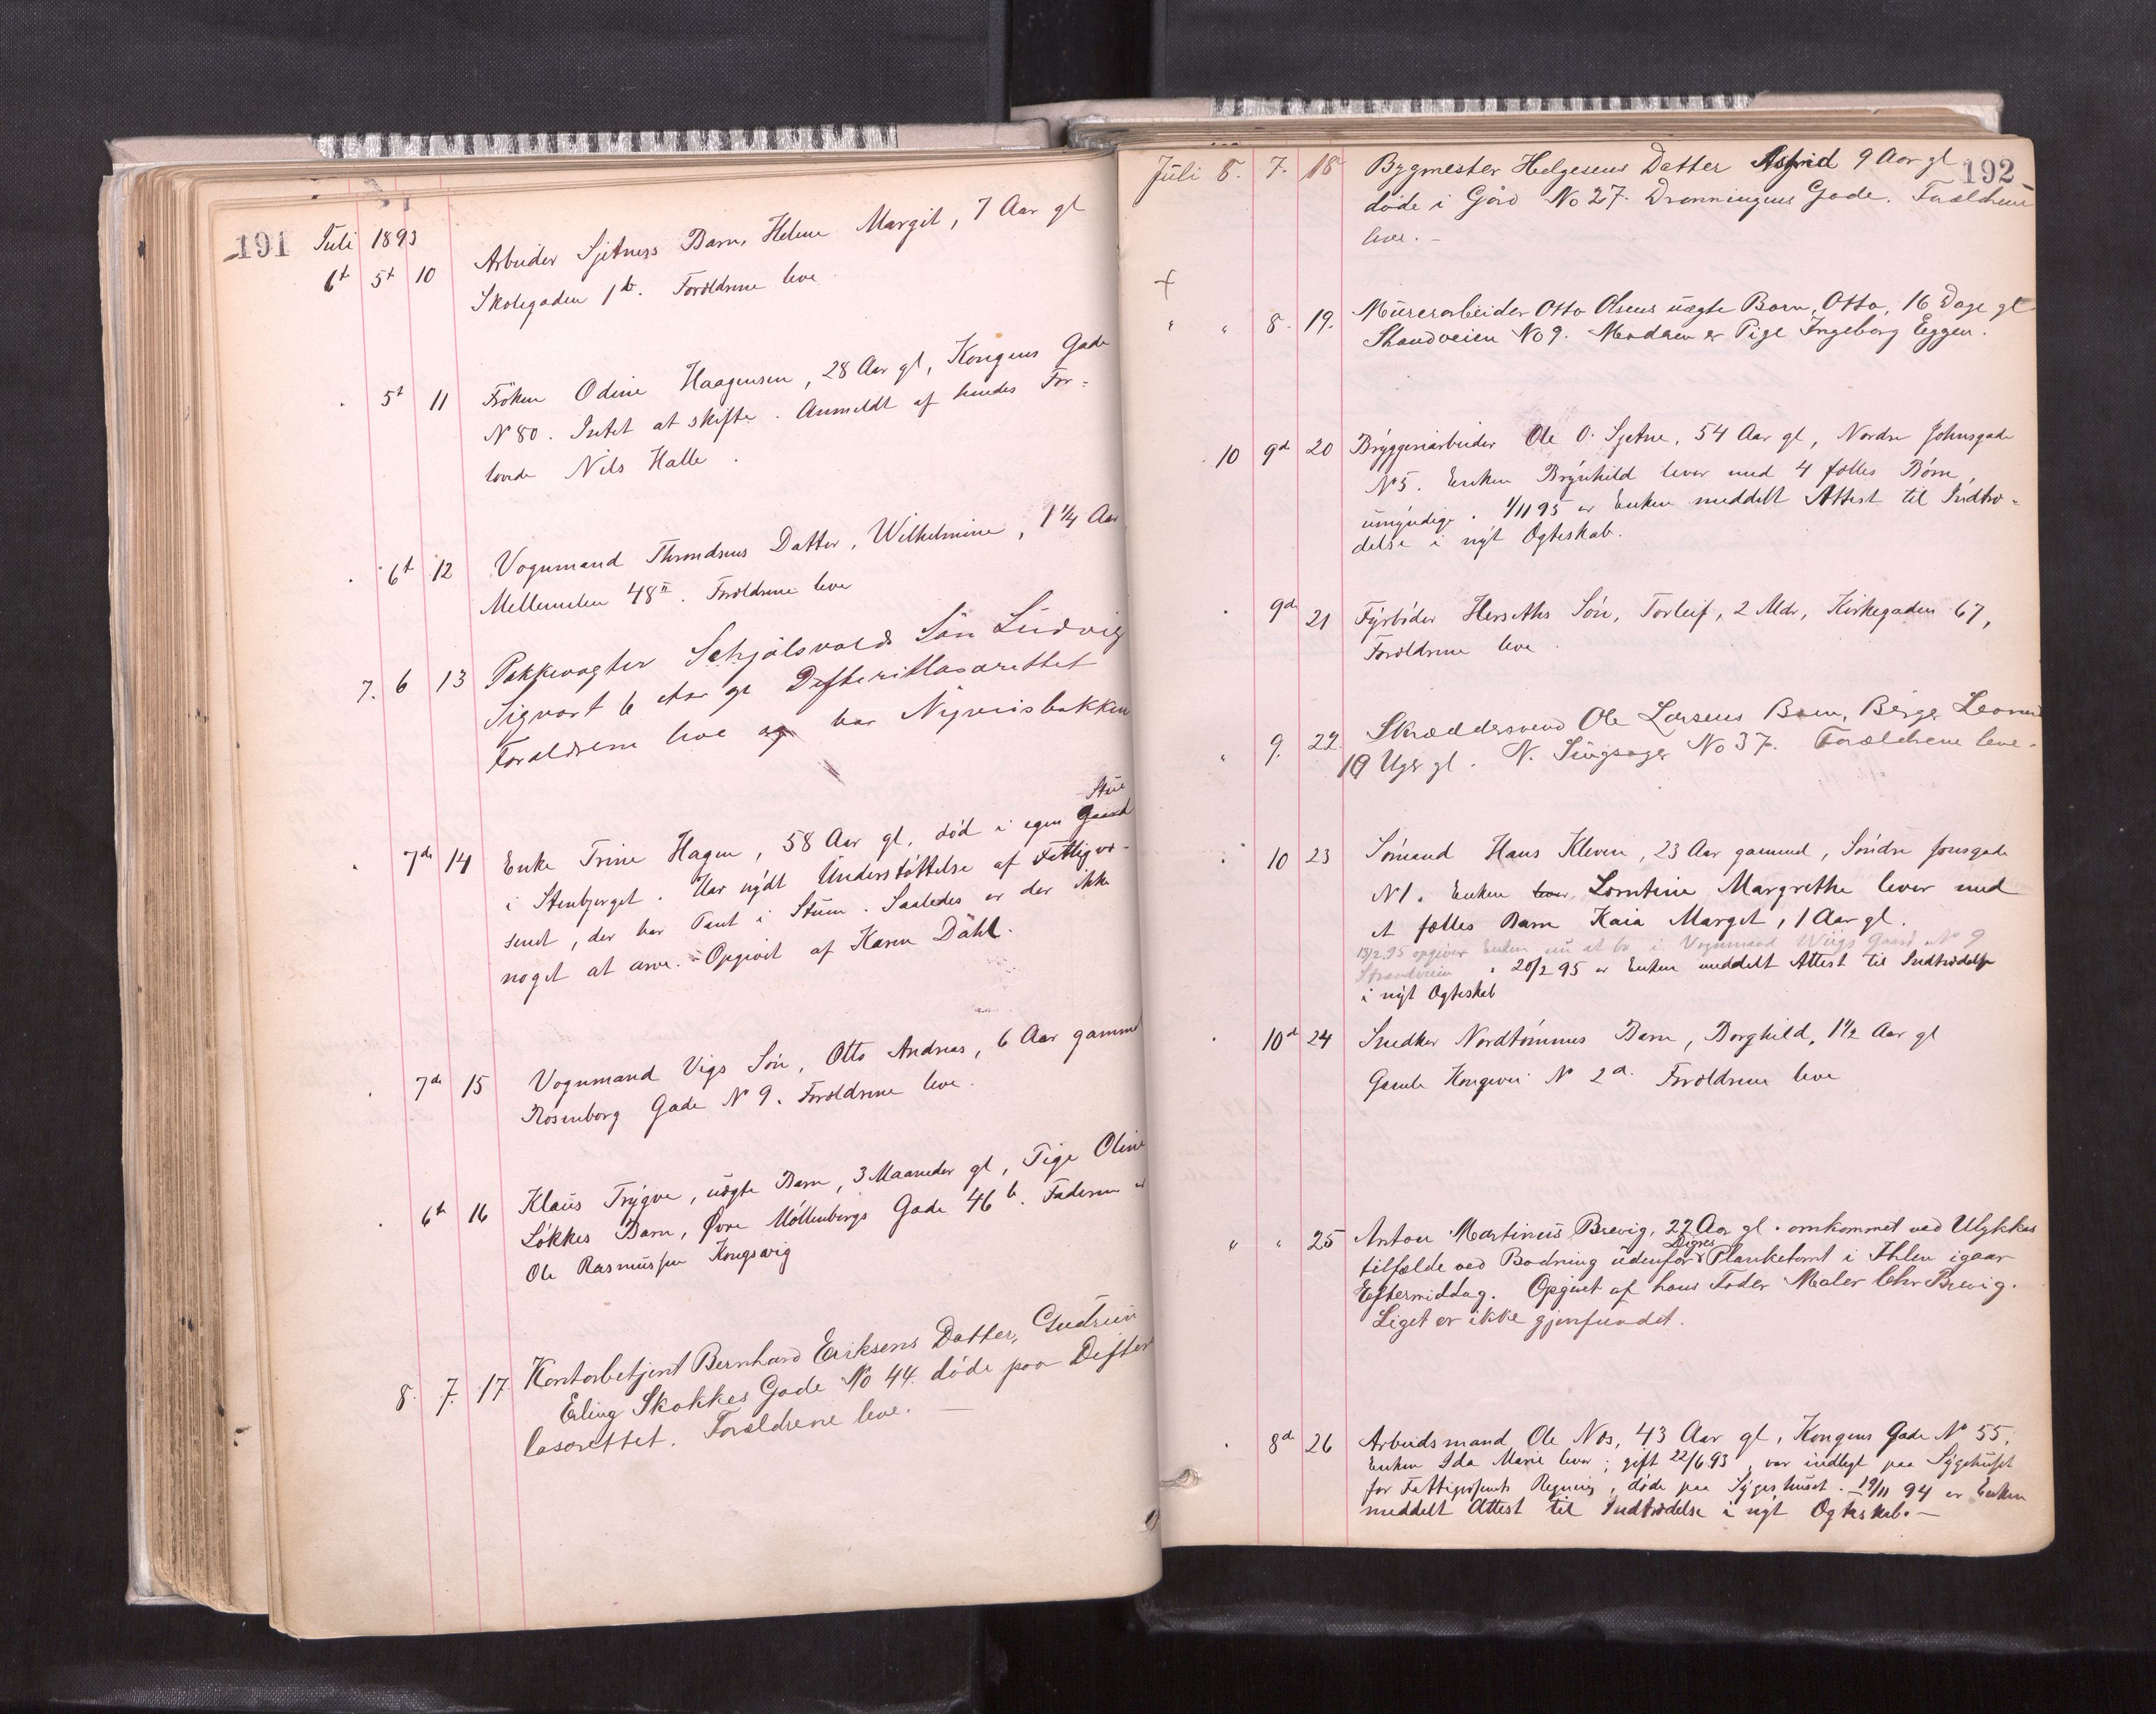 191 Juli 1893
6t 5t 10 Arbeider Sjetness Barn, Helene Margit, 7 Aar gl
Skolegaden 1 b. Forældrene leve
5t 11 Frøken Odine Haagensen, 28 Aar gl, Kongens Gade
N 80. Intet at skifte. Anmeldt af hendes For-
lovede Nils Halle.
6t 12 Vognmand Throndsens Datter, Wilhelmine, 1 1/4 Aar,
Mellemilen 48 II. Forældrene leve
7. 6 13 Pakkevagter Schjølsvolds Søn Ludvig
Sigvart 6 Aar gl Difteritlasarettet
Forældrene leve og bor Nyveisbakken
7de 14 Enke Trine Hagen, 58 Aar gl, død i egen Gaard Stue
i Stenbjerget. Har nydt Understøttelse af Fattigvæ-
senet, der har Pant i Stuen. Saaledes er der ikke
noget at arve. - Opgivet af Karen Dahl.
7de 15 Vognmand Vigs Søn, Otto Andreas, 6 Aar gammel
Rosenborg Gade N 9. Forældrene leve.
6te 16 Klaus Trygve, uægte Barn, 3 Maaneder gl, Pige Oline
Løkkes Barn, Øvre Møllenbergs Gade 46 b. Faderen er
Ole Rasmussen Kongsvig
8. 7. 17. Kontorbetjent Bernhard Eriksens Datter, Gudrun
Erling Skakkes Gade No 44. døde paa Difterit
lasarettet. Forældrene leve. —
192
Juli 8. 7. 18 Bygmester Helgesens Datter Astrid 9 Aar gl
døde i Gård No 27. Dronningens Gade. Forældrene
leve. —
+
" " 8. 19. Murerarbeider Otto Olsens uægte Barn, Otto, 16 Dage gl
Strandveien No 9. Moderen er Pige Ingeborg Eggen.
10 9de 20 Bryggeriarbeider Ole O. Sjetne, 54 Aar gl, Nordre Johnsgade
N 5. Enken Brynhild lever med 4 fælles Børn,
umyndige. 1/11 95 er Enken meddelt Attest til Indtræ-
delse i nyt Ægteskab.
9de 21 Fyrbøder Herseths Søn, Torleif, 2 Mdr, Kirkegaden 67,
Forældrene leve.
" 9. 22. Skræddersvend Ole Larsens Barn, Birger Leonard
10 Uger gl. N. Singsager No 37. Forældrene leve -
10 23 Sømand Hans Kleven, 23 Aar gammel, Søndre Jonsgade
N 1. Enken lever, Lorntine Margrethe lever med
et fælles Barn Kaia Marget, 1 Aar gl.
13/2 95 opgiver Enken nu at bo i Vognmand Wiigs Gaard No 9
Strandveien. 20/2 95 er Enken meddelt Attest til Indtrædelse
i nyt Ægteskab
10de 24 Snedker Nordtømmes Barn, Borghild, 1 1/2 Aar gl
Gamle Kongevei N 2 a. Forældrene leve
" " 25 Anton Martinius Brevig, 22 Aar gl. omkommet ved Ulykkes
tilfælde ved Badning udenfor Digres Planketomt i Ihlen igaar
Eftermiddag. Opgivet af hans Fader Maler Chr Brevig.
Liget er ikke gjenfundet.
8de 26 Arbeidsmand Ole Næs, 43 Aar gl, Kongens Gade No 55,
Enken Ida Marie lever; gift 22/6 93, var indlagt paa Sygehuset
for Fattigvæsenets Regning, døde paa Sygehuset. 19/11 94 er Enken
meddelt Attest til Indtrædelse i nyt Ægteskab. —